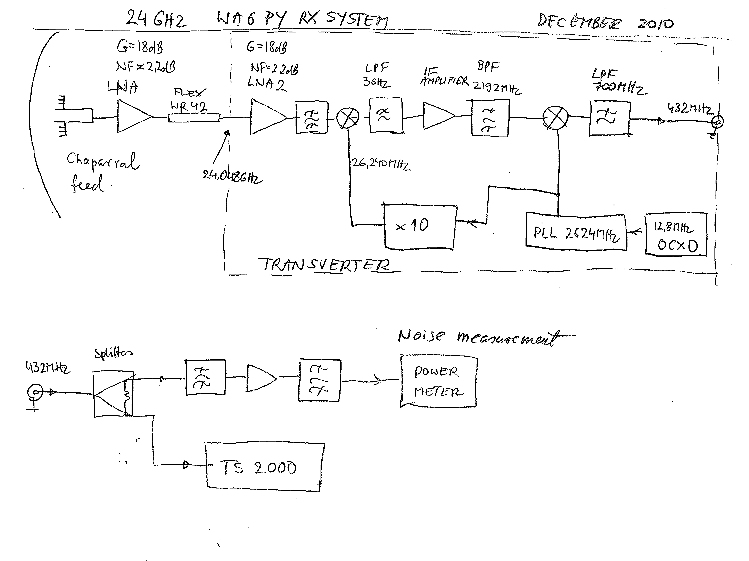 24 GHz WA6PY RX SYSTEM DECEMBER 2010
G=18dB
NF=2,2dB
LNA
FLEX
WR42
G=18dB
NF=2,2dB
LNA 2
LPF
3GHz
IF
AMPLIFIER
BPF
2192MHz
LPF
700MHz
432MHz
Chaparral
feed
24,048GHz
26,240MHz
x10
PLL 2624MHz
12,8MHz
OCXO
TRANSVERTER
432MHz
Splitter
Noise measurement
POWER
METER
TS 2.000